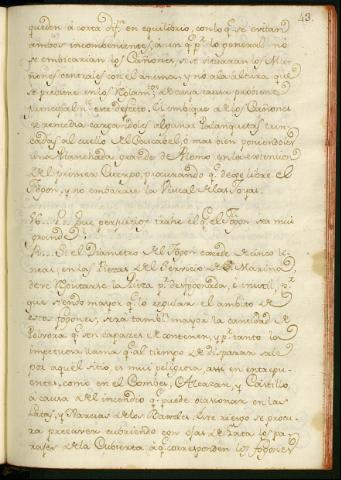 43.
queden à corta dif.ª en equilibrio, con lo q.e se evitan
ambos incombenientes, aun q.e p.r lo general no
se embicarian los Cañones si se situaran los Mu-
ñones centrales con el anima, y no a la altura que
se previene en los Reglam.tos de cuya causa proviene
prâl m.te este defecto. El embique de los Cañones
se remedia cargandoles algunas Palanquetas trin-
cadas al cuello del Cascabel, ò mas bien poniendoles
una Planchada grande de Plomo en la extencion
del primer Cuerpo, procurando q.e dege libre el
Fogon, y no embarace la visual de las Joyas.
P. Que perjuicios trahe el q.e el Fogon sea mui
grande?
R. Si el Diametro del Fogon excede de cinco li-
neas, en las Piezas del Servicio de Marina,
debe reputarse la Pieza p.r desfogonada, è inutil, p.r
que siendo mayor q.e lo regular el ambito de
estos fogones, será tambien mayor la cantidad de
Polvora q.e son capaces de contener, y p.r tanto la
impetuosa llama q.e al tiempo de disparar sale
por aquel sitio, es mui peligrosa, assi en entrepu-
entes, como en el Combes, Alcazar, y Castillo,
à causa del incendio q.e puede ocasionar en las
Latas, y Narecias de los Baraoles. Este riesgo se procu-
ra precaver cubriendo con ojas de Lata los pa-
rajes de la Cubierta à q.e corresponden los fogones